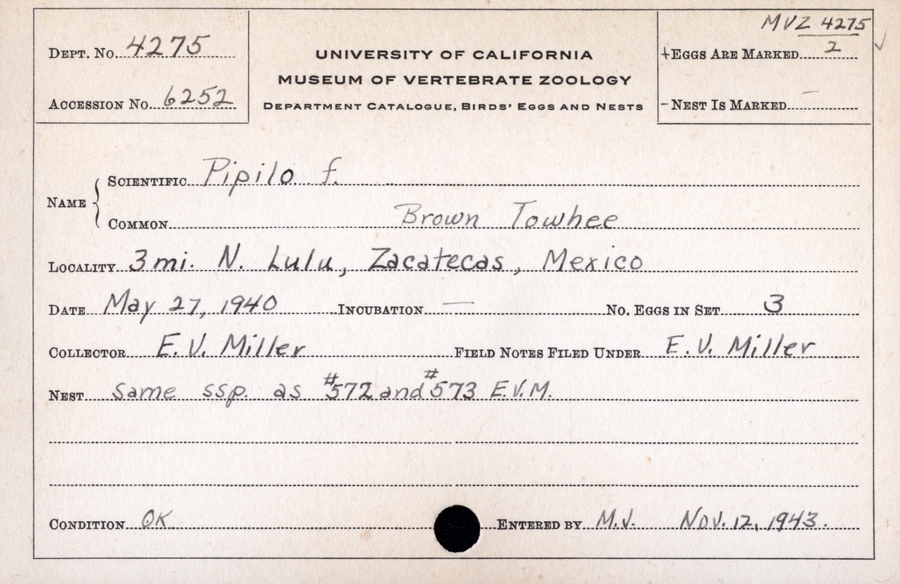 MVZ 4275
DEPT. No. 4275
UNIVERSITY OF CALIFORNIA
+EGGS ARE MARKED 2
MUSEUM OF VERTEBRATE ZOOLOGY
ACCESSION No. 6252
DEPARTMENT CATALOGUE, BIRDS' EGGS AND NESTS
-NEST IS MARKED –
NAME { SCIENTIFIC Pipilo f.
COMMON Brown Towhee
LOCALITY 3mi. N. Lulu, Zacatecas, Mexico
DATE May 27, 1940 INCUBATION — No. EGGS IN SET 3
COLLECTOR E.V. Miller FIELD NOTES FILED UNDER E.V. Miller
NEST same ssp. as #572 and #573 E.V.M.
CONDITION OK ENTERED BY M.J. Nov. 12, 1943.